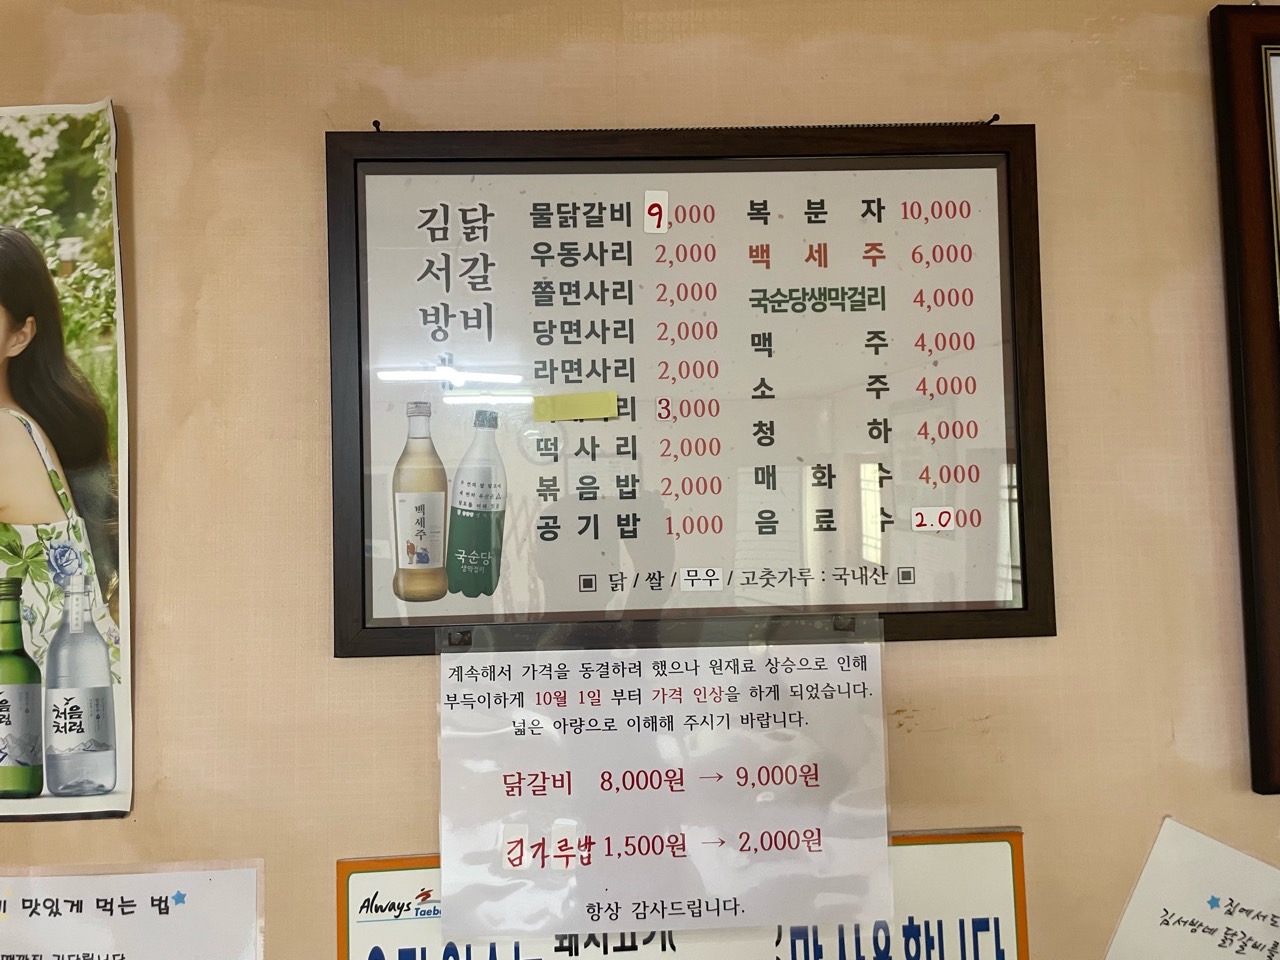 김서방네
닭갈비
물닭갈비 9,000
우동사리 2,000
쫄면사리 2,000
당면사리 2,000
라면사리 2,000
리 3,000
떡사리 2,000
볶음밥 2,000
공기밥 1,000
복분자 10,000
백세주 6,000
국순당생막걸리 4,000
맥주 4,000
소주 4,000
청하 4,000
매화수 4,000
음료수 2.000
▣ 닭 / 쌀 / 무우 / 고춧가루 : 국내산 ▣
백세주
국순당
생막걸리
처음
처럼
계속해서 가격을 동결하려 했으나 원재료 상승으로 인해
부득이하게 10월 1일 부터 가격 인상을 하게 되었습니다.
넓은 아량으로 이해해 주시기 바랍니다.
닭갈비 8,000원 → 9,000원
김가루밥 1,500원 → 2,000원
항상 감사드립니다.
맛있게 먹는 법
Always
집에서도
김서방네 닭갈비를